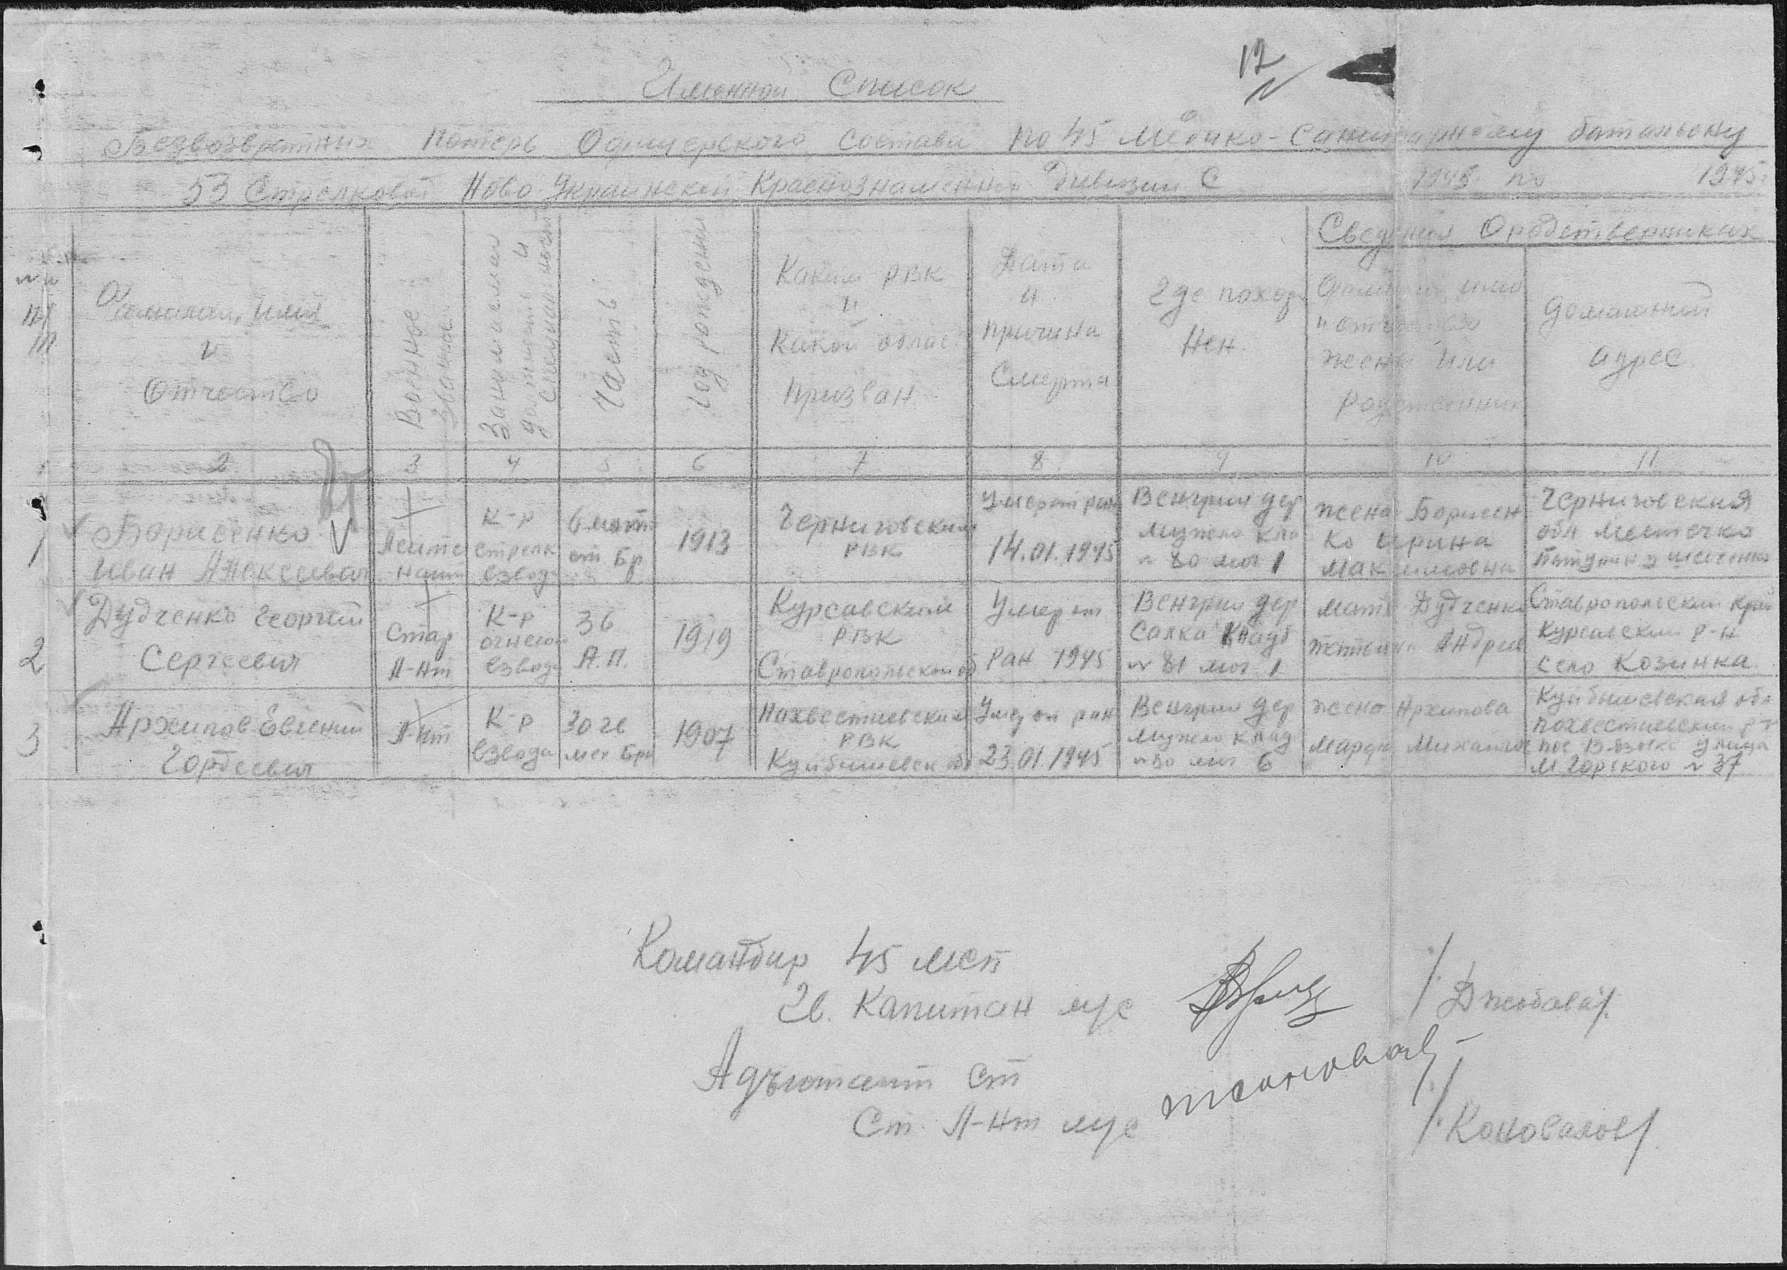 12
Именной Список
Безвозвратных потерь Офицерского состава по 45 Медико-Санитарному батальону
53 Стрелковой Ново Украинской Краснознаменной Дивизии С 1945 по 1945г
Сведения О родственниках
Фамилия, Имя
и
Отчество
Военное
звание
Занимаемая
должность и
специальность
Часть
год рождения
Каким РВК
и
какой облас
призван
Дата
и
причина
Смерти
Где похор
Нен.
Фамилия, имо
и отчество
жены или
Родственник
домашний
адрес
1 2 3 4 5 6 7 8 9 10 11
1
Борисенко
Иван Алексеевич
Лейте
нант
К-р
стрелк
взвода
6 мот
стр Бр
1913
Черниговским
РВК
Умер от ран
14.01.1945
Венгрия дер
мужло кла
№ 80 мог 1
жена Борисен
ко Ирина
Максимовна
Черниговская
обл местечко
2
Дудченко Георгий
Сергеевич
Стар
Л-нт
К-р
огнево
взвода
36
А.П.
1919
Курсавским
РВК
Ставропольской об
Умер от
ран 1945
Венгрия дер
Салка Клад
№ 81 мог. 1
мать Дудченко
Андрее
Ставропольский край
Курсавский р-н
село Козинка
3
Архипов Евгений
Гордеевич
Л-нт
К-р
взвода
30 гв
мех Бр
1907
Похвестневским
РВК
Куйбышевск об
Умер от ран
23.01.1945
Венгрия дер
мужло клад
№ 80 мог 6
жена Архипова
Мария Михайло
Куйбышевская обл
похвестневский р-н
пос Вязовка улица
М Горского № 37
Командир 45 мсп
Гв. Капитан м/с
Адъютант ст
Ст. Л-нт м/с
/Коновалов/